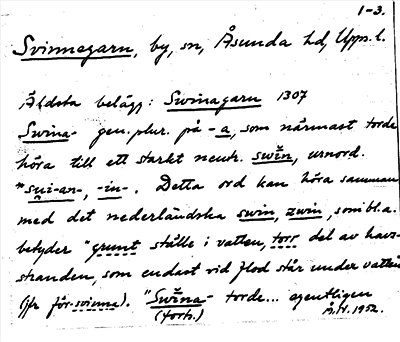 1-3.
Svinnegarn, by, sn, Åsunda hd, Upps. l.
Äldsta belägg: Swinagarn 1307
Swina- gen. plur. på -a, som närmast torde
höra till ett starkt neutr. swīn, urnord.
*swi-an-, -in-. Detta ord kan höra samman
med det nederländska swin, zwin, som bl.a.
betyder "grunt ställe i vatten, torr del av havs-
stranden, som endast vid flod står under vatten
(jfr för-svinna). "Swīna- torde... egentligen
(forts.) 1952.